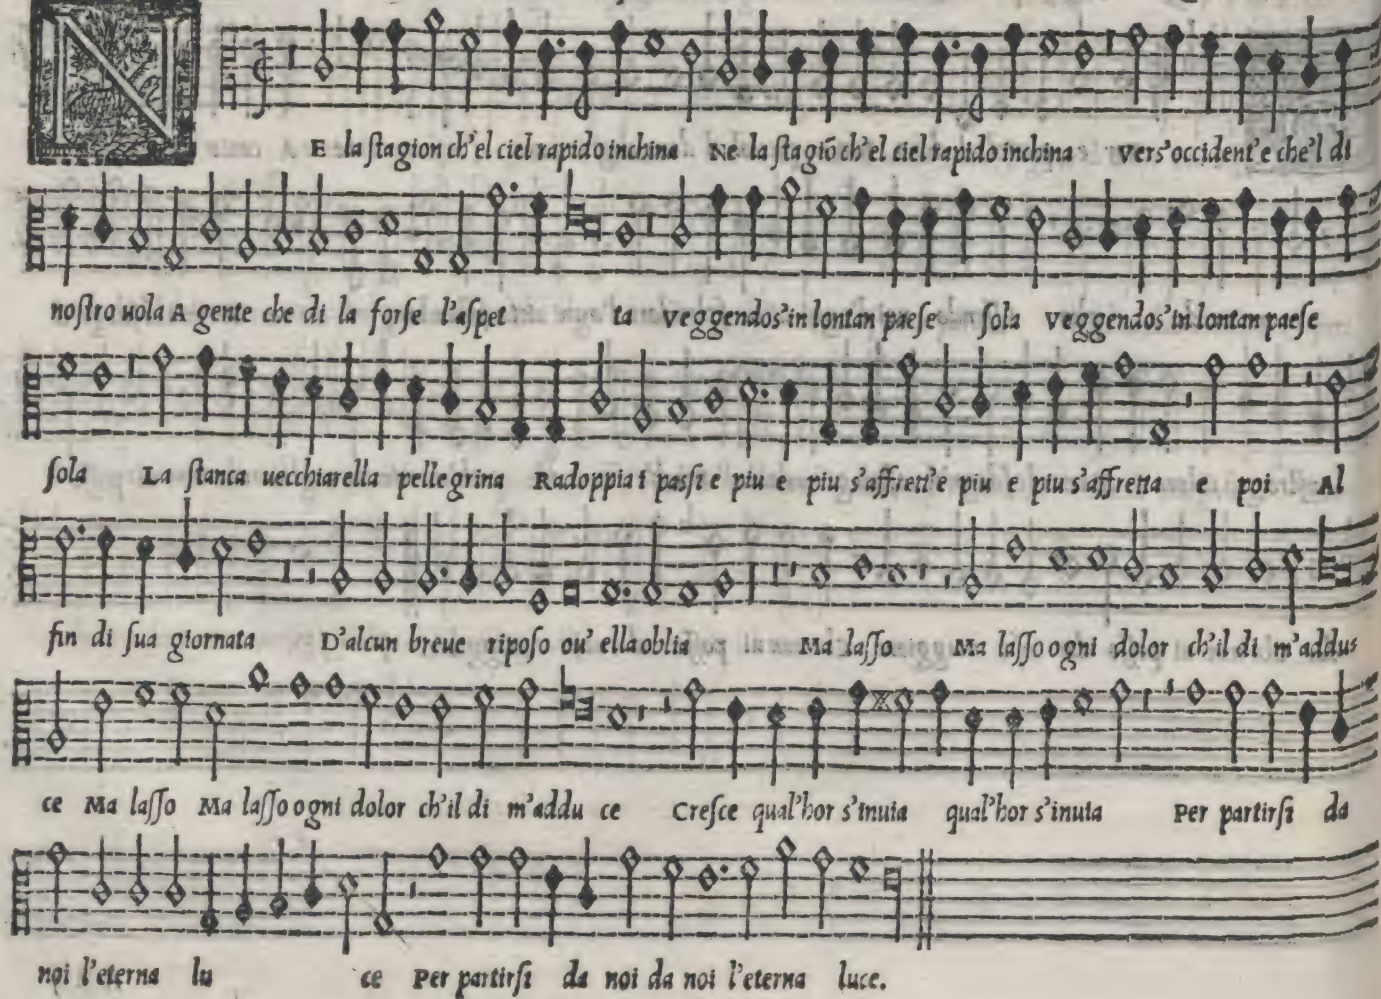 N
E la ſtagion ch'el ciel rapido inchina Ne la ſtagiõ ch'el ciel rapido inchina Vers'occident'e che'l di
noſtro uola A gente che di la forſe l'aſpet ta Veggendos'in lontan paeſe ſola Veggendos'in lontan paeſe
ſola La ſtanca uecchiarella pellegrina Radoppia i paſsi e piu e piu s'affrett'e piu e piu s'affretta e poi Al
fin di ſua giornata D'alcun breue ripoſo ou' ella oblia Ma laſſo Ma laſſo ogni dolor ch'il di m'addus
ce Ma laſſo Ma laſſo ogni dolor ch'il di m'addu ce Creſce qual'hor s'inuia qual'hor s'inuia Per partirſi da
noi l'eterna lu ce Per partirſi da noi da noi l'eterna luce.